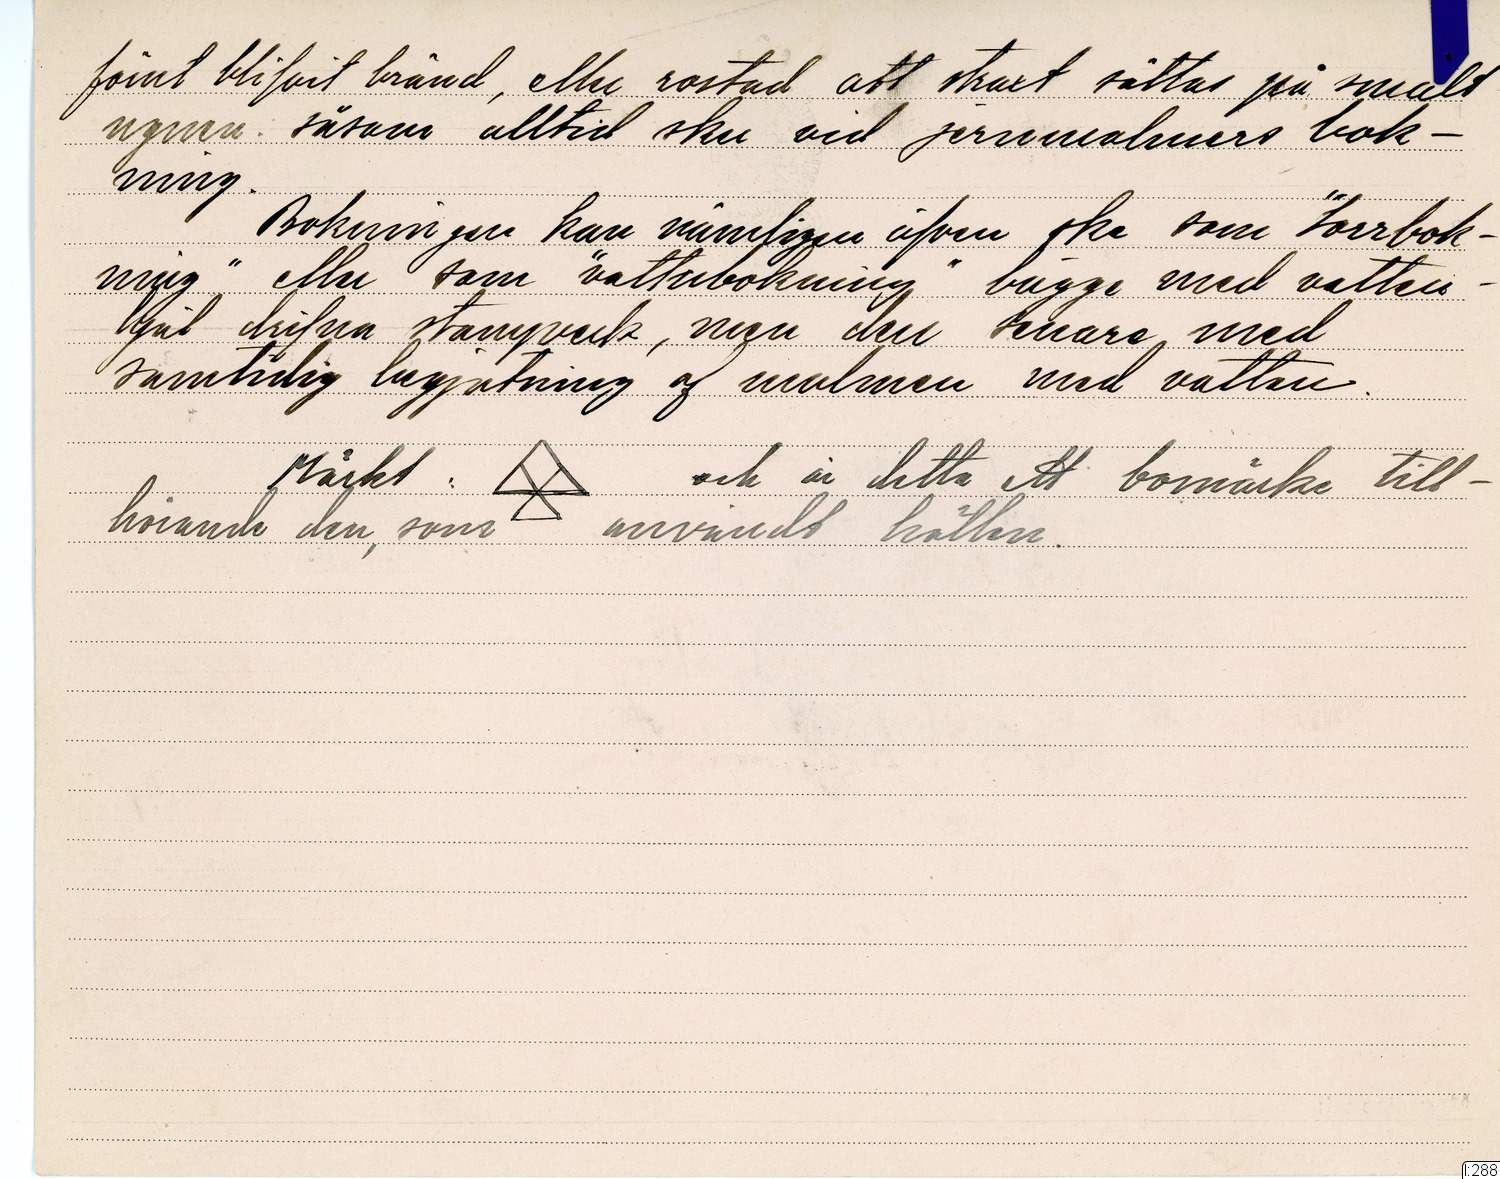 först blifvit bränd, eller rostad att straxt sättas på smält
ugnen. såsom alltid sker vid jernmalmers bok-
ning.
Bokningen kan nämligen äfven ske som "torrbok-
ning" eller som "våtbokning" bägge med vatten-
hjul drifna stampverk, men den senare med
samtidig begjutning af malmen med vatten.
Märkt: och är detta ett bomärke till-
hörande den, som användt hällen.
I:288